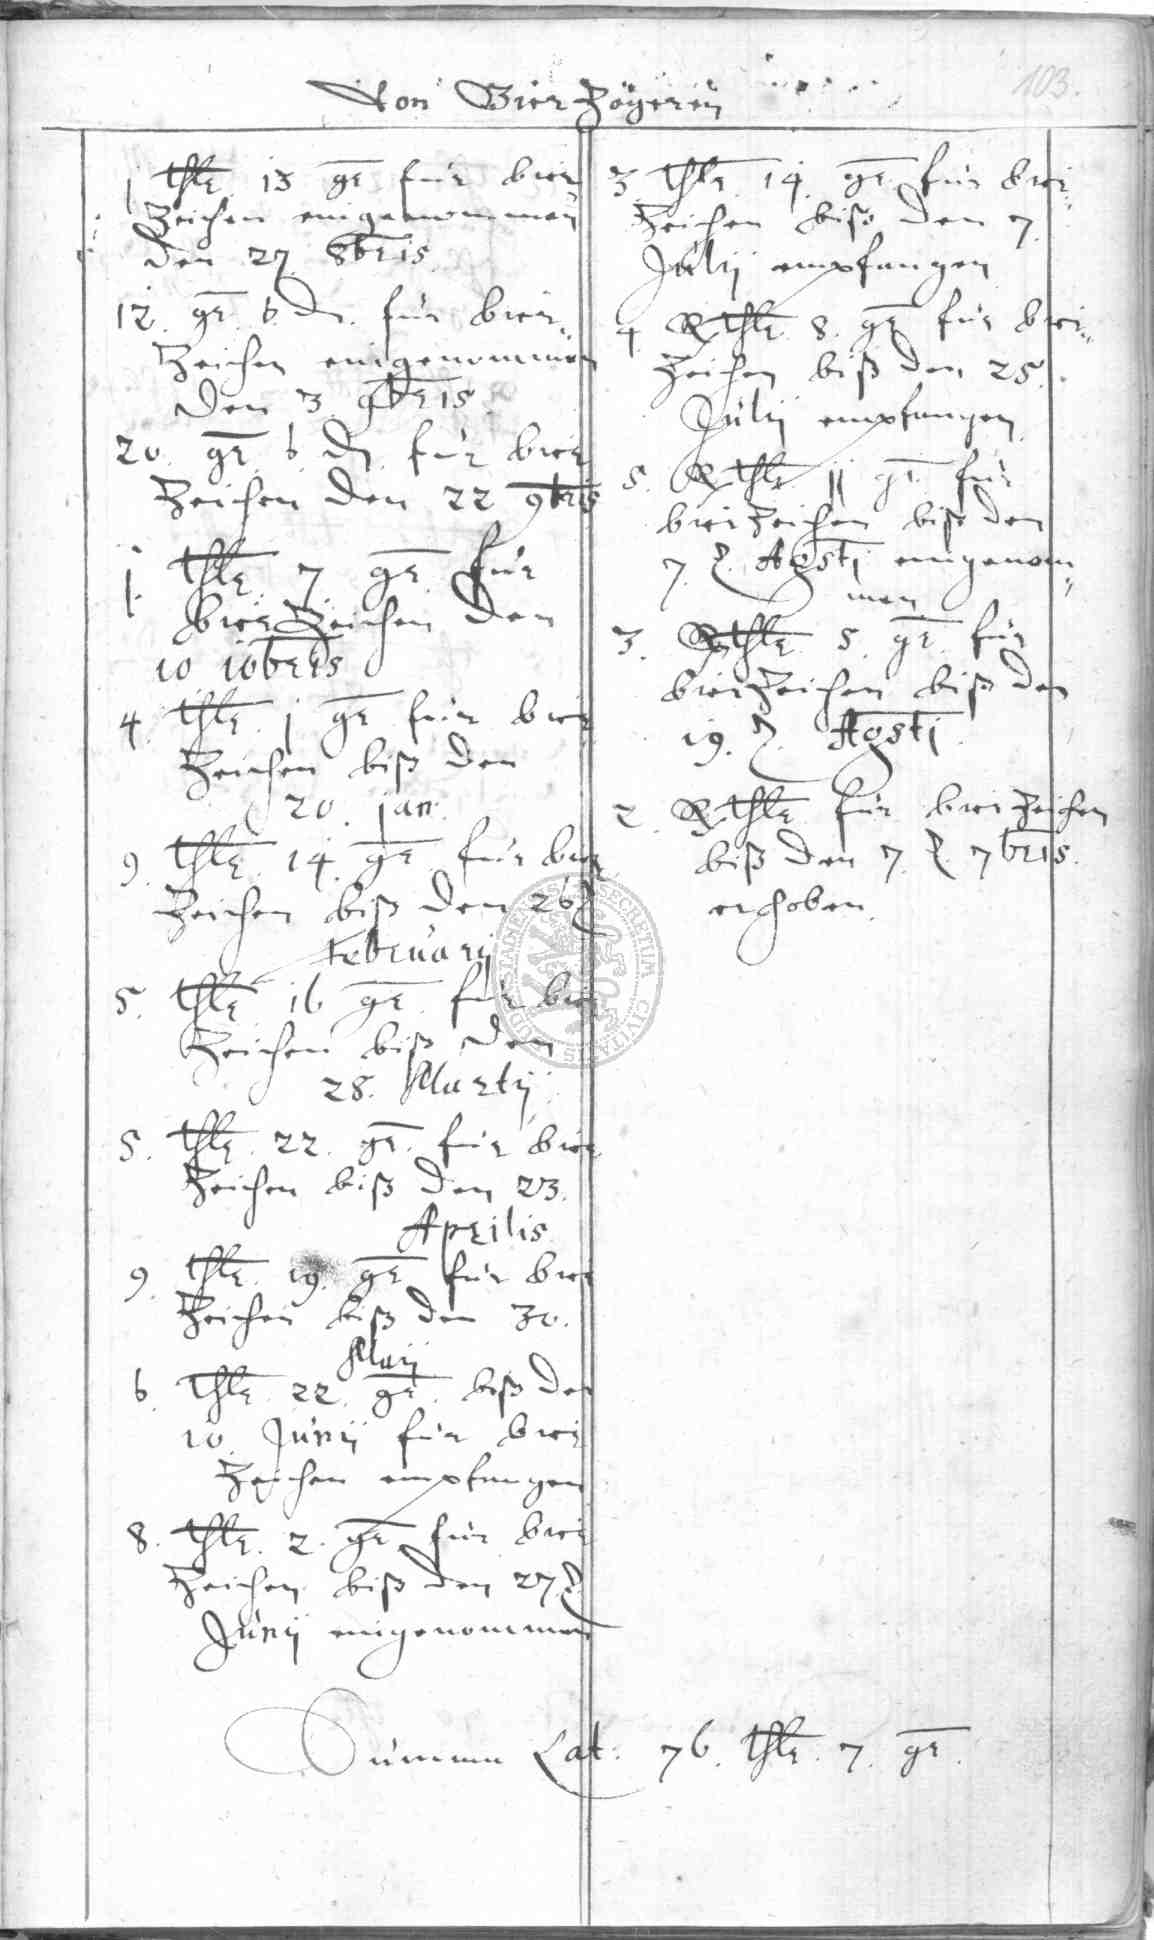 103.
Von Bier Zögeren
1 thlr. 13 gr für bier
Zeichen eingenommen
den 27 8bris.
12. gr. 6 dn. für bier-
Zeichen eingenommen
den 3. 9bris.
20. gr 6 dn. für bier
Zeichen den 22 9bris
1. thlr. 7 gr. für
bier Zeichen den
10 10bris
4. thlr. 1 gr für bier
Zeichen biß den
20. jan.
9. thlr. 14. gr für bier
Zeichen biß den 26
februarij
5. thlr. 16 gr. für bier
Zeichen biß den
28. Martij
5. thlr. 22. gr. für bier
Zeichen biß den 23.
Aprilis
9. thlr. 19. gr für bier
Zeichen biß den 30.
Maij
6 thlr. 22. gr. biß den
10. Junij für bier
Zeichen empfangen
8. thlr. 2. gr für bier
Zeichen biß den 27
Junij eingenommen
3. thlr. 14. gr. für bier-
Zeichen biß den 7.
Julij empfangen
4 Rthlr. 8. gr für bier-
Zeichen biß den 25.
Julij empfangen
5. Rthlr 11 gr. für
bierzeichen biß den
7. Agsti eingenom-
men
3. Rthlr. 5. gr. für
bierZeichen biß den
19. Agsti
2. Rthlr für bierzeichen
biß den 7. 7bris.
erhoben.
SECRETUM CIVITATIS
Summa Lat. 76. thlr. 7. gr.